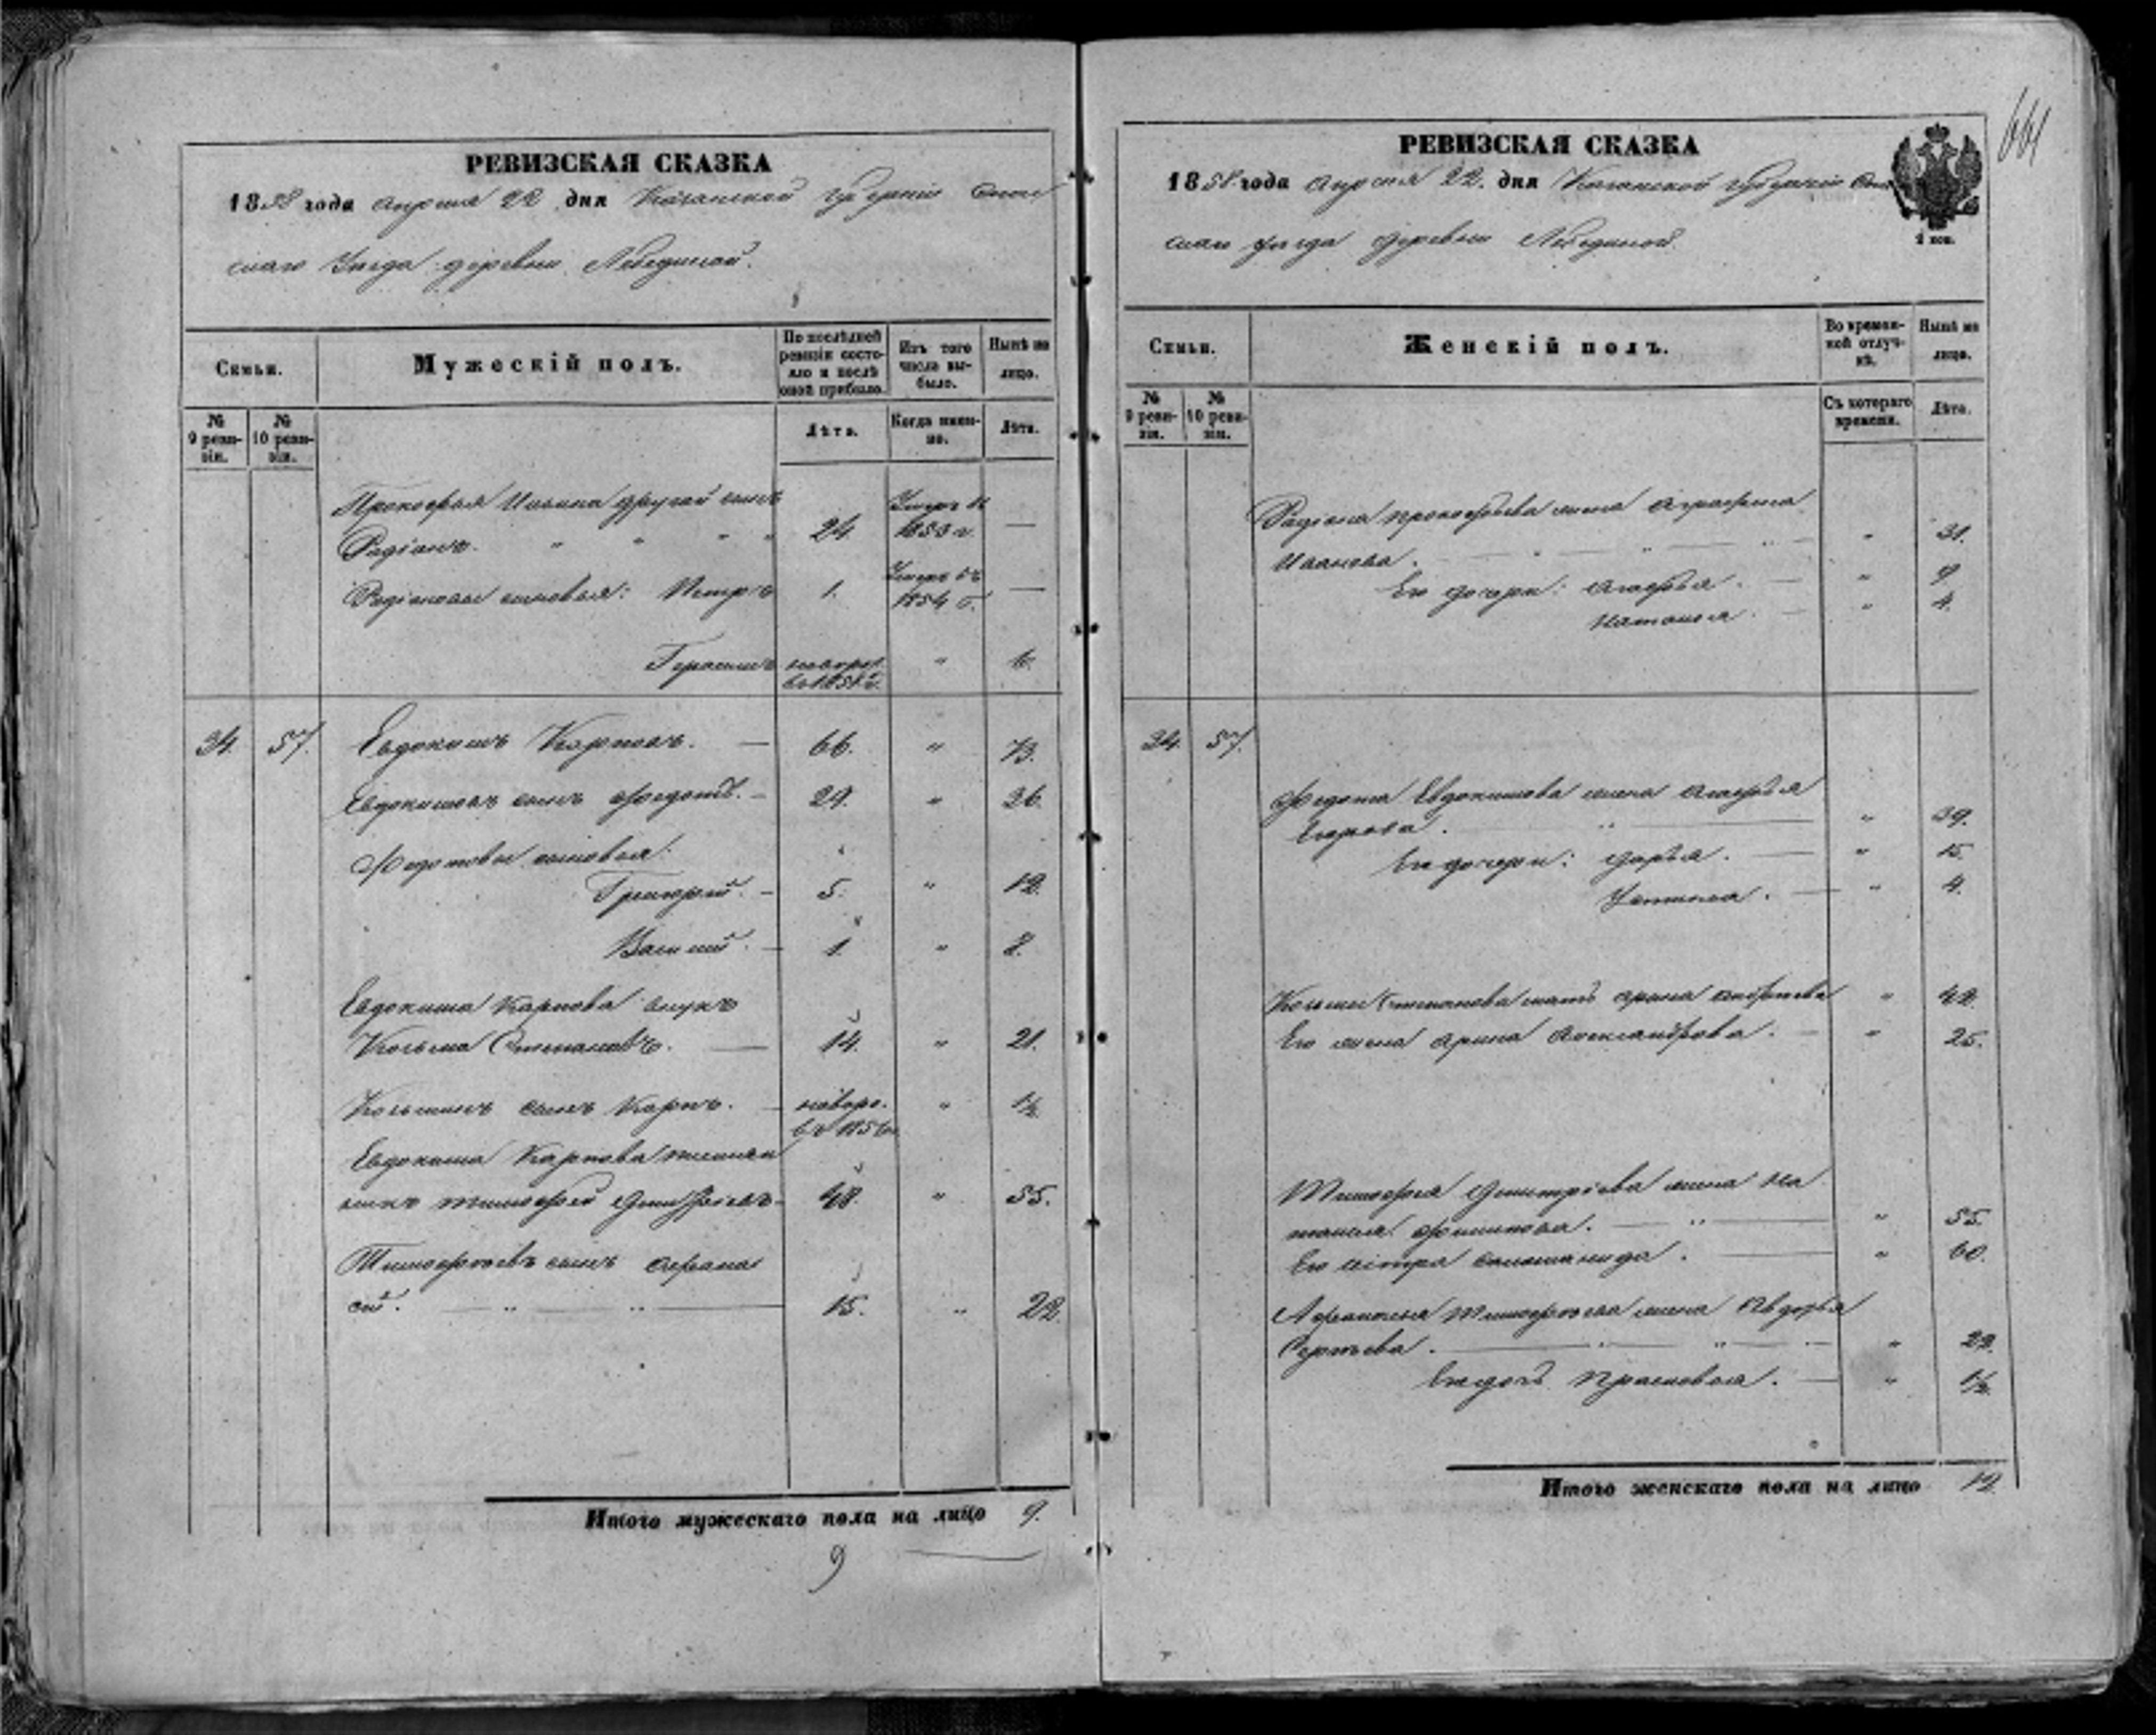 РЕВИЗСКАЯ СКАЗКА
1858 года Апреля 22 дня Казанской Губерніи Спас
скаго Уезда деревни Лебединой.
Семьи.
Мужескій полъ.
По послѣдней ревизіи состояло и послѣ оной прибыло.
Изъ того числа выбыло.
Нынѣ на лицо.
№ 9 ревизіи.
№ 10 ревизіи.
Лѣта.
Когда именно.
Лѣта.
Прокофья Ильина другой сынъ
Радіонъ. 24. Умеръ въ 1853 г. —
Радіоновы сыновья: Петръ 1. Умеръ въ 1854 г. —
Герасимъ новорож. " 6.
34. 57. Евдокимъ Карповъ. — 66. " 73.
Евдокимовъ сынъ Федотъ. — 29. " 36.
Федотовы сыновья:
Григорій. — 5. " 12.
Василій. — 1. " 8.
Евдокима Карпова внукъ
Козьма Степановъ. — 14. " 21.
Козьминъ сынъ Карпъ. — новоро. " 1/2
въ 1856 г.
Евдокима Карпова племян
никъ Тимофей Дмитріевъ — 48. " 55.
Тимофеевъ сынъ Афана
сій. — " — " — 15. " 22.
Итого мужескаго пола на лицо 9.
9
661
РЕВИЗСКАЯ СКАЗКА
1858 года Апреля 22. дня Казанской Губерніи Спас
скаго уезда деревни Лебединой.
2 коп.
Семьи.
Женскій полъ.
Во временной отлучкѣ.
Нынѣ на лицо.
№ 9 ревизіи.
№ 10 ревизіи.
Съ котораго времени.
Лѣта.
Радіона Прокофьева жена Аграфена
Иванова. " 31.
Его дочери: Агафья. — " 9.
Наталья. — " 4.
34. 57.
Федота Евдокимова жена Агафья
Егорова. " 39.
Его дочери: Дарья. — " 15.
Устинья. — " 4.
Козьмы Степанова мать Арина " 42.
Его жена Арина Александрова. — " 25.
Тимофея Дмитріева жена На
талья Филипова. — " — " 55.
Его сестра Саломанида. — " 60.
Афанасья Тимофеева жена Авдотья
Сергеева. " 22.
Его дочь Прасковья. — " 1/2
Итого женскаго пола на лицо 12